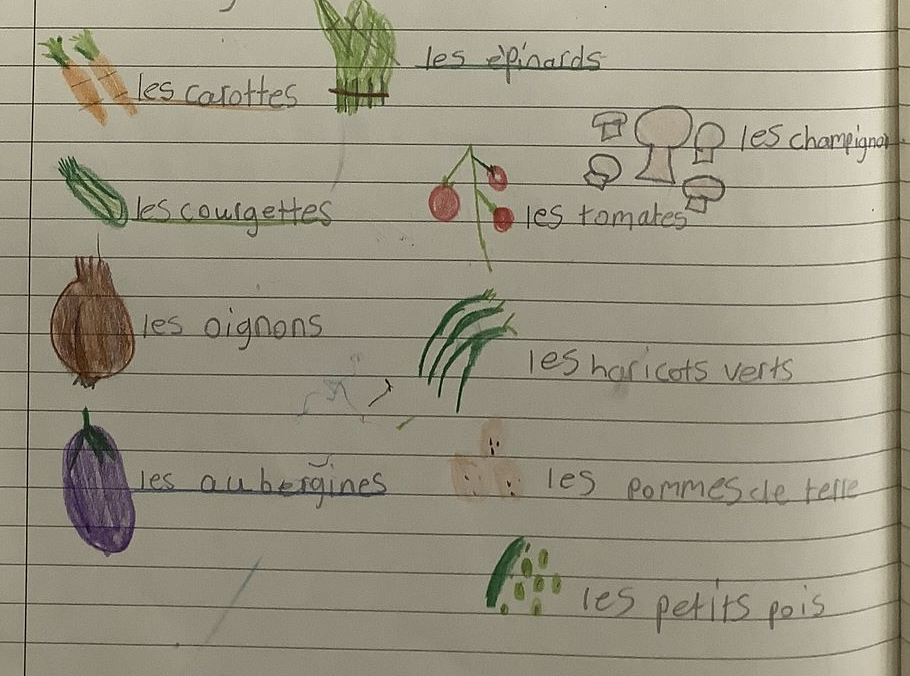 les épinards
les carottes
les champignon
les courgettes
les tomates
les oignons
les haricots verts
les aubergines
les pommes de terre
les petits pois